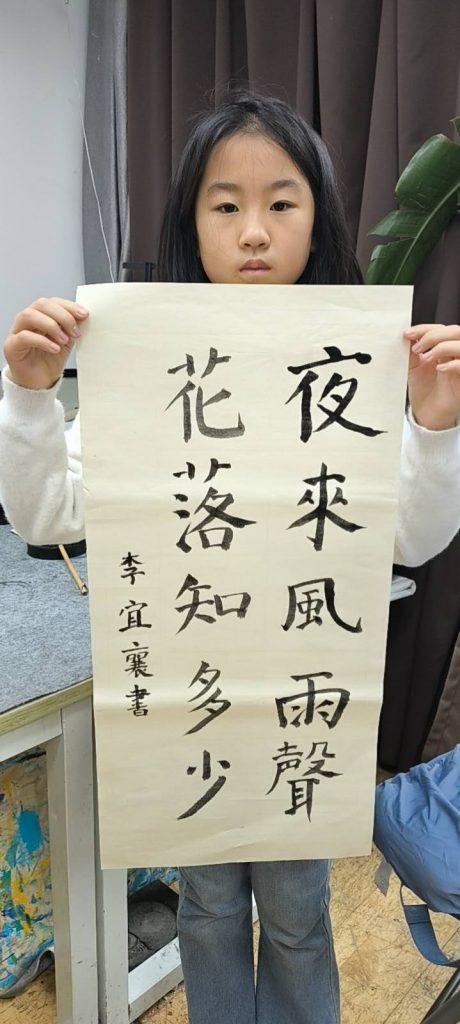 夜來風雨聲
花落知多少
李宜襄書